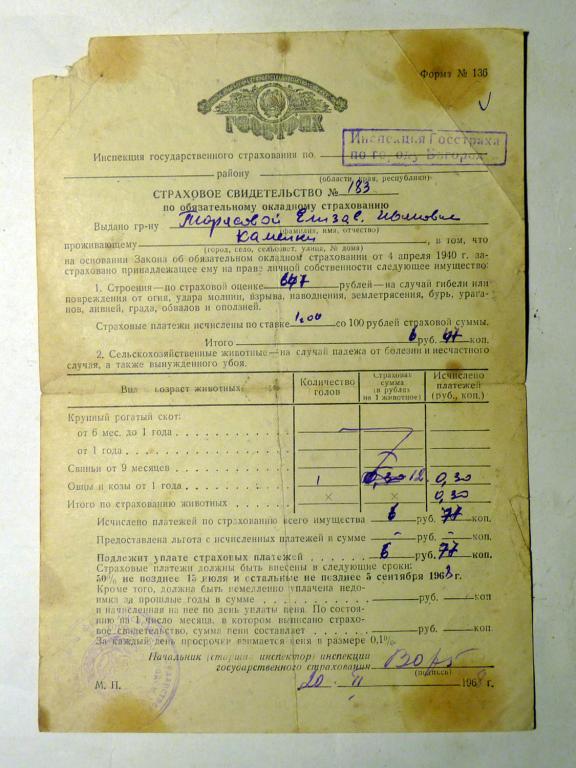 Форма № 136
ГОССТРАХ
Инспекция Госстраха
по городу
Инспекция государственного страхования по
району
(области, края, республики)
СТРАХОВОЕ СВИДЕТЕЛЬСТВО № 183
по обязательному окладному страхованию
Выдано гр-ну Тарасовой Елизав.
(фамилия, имя, отчество)
проживающему Каменки, в том, что
(город, село, сельсовет, улица, № дома)
на основании Закона об обязательном окладном страховании от 4 апреля 1940 г. за-
страховано принадлежащее ему на праве личной собственности следующее имущество:
1. Строения—по страховой оценке рублей—на случай гибели или
повреждения от огня, удара молнии, взрыва, наводнения, землетрясения, бурь, урага-
нов, ливней, града, обвалов и оползней.
Страховые платежи исчислены по ставке 1.00 со 100 рублей страховой суммы.
Итого 6 руб. 47 коп.
2. Сельскохозяйственные животные—на случай падежа от болезни и несчастного
случая, а также вынужденного убоя.
Вид и возраст животных Количество голов Страховая сумма (в рублях на 1 животное) Исчислено платежей (руб., коп.)
Крупный рогатый скот:
от 6 мес. до 1 года
от 1 года
Свиньи от 9 месяцев
Овцы и козы от 1 года 1 12 0,30
Итого по страхованию животных × × 0,30
Исчислено платежей по страхованию всего имущества 6 руб. 77 коп.
Предоставлена льгота с исчисленных платежей в сумме – руб. – коп.
Подлежит уплате страховых платежей 6 руб. 77 коп.
Страховые платежи должны быть внесены в следующие сроки:
50% не позднее 15 июля и остальные не позднее 5 сентября 1968 г.
Кроме того, должна быть немедленно уплачена недо-
имка за прошлые годы в сумме руб. коп
и начисленная на нее по день уплаты пеня. По состоя-
нию на 1 число месяца, в котором выписано страхо-
вое свидетельство, сумма пени составляет руб. коп.
За каждый день просрочки взимается пеня в размере 0,1%.
Начальник (старший инспектор) инспекции
государственного страхования
(подпись)
М. П. 20 196 г.